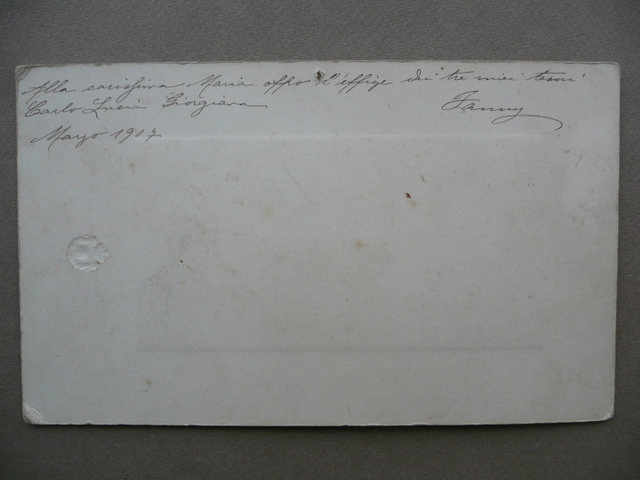 Alla carissima Maria offro l'effige dei tre miei tesori
Carlo Lucia Giorgiana Fanny
Marzo 1907